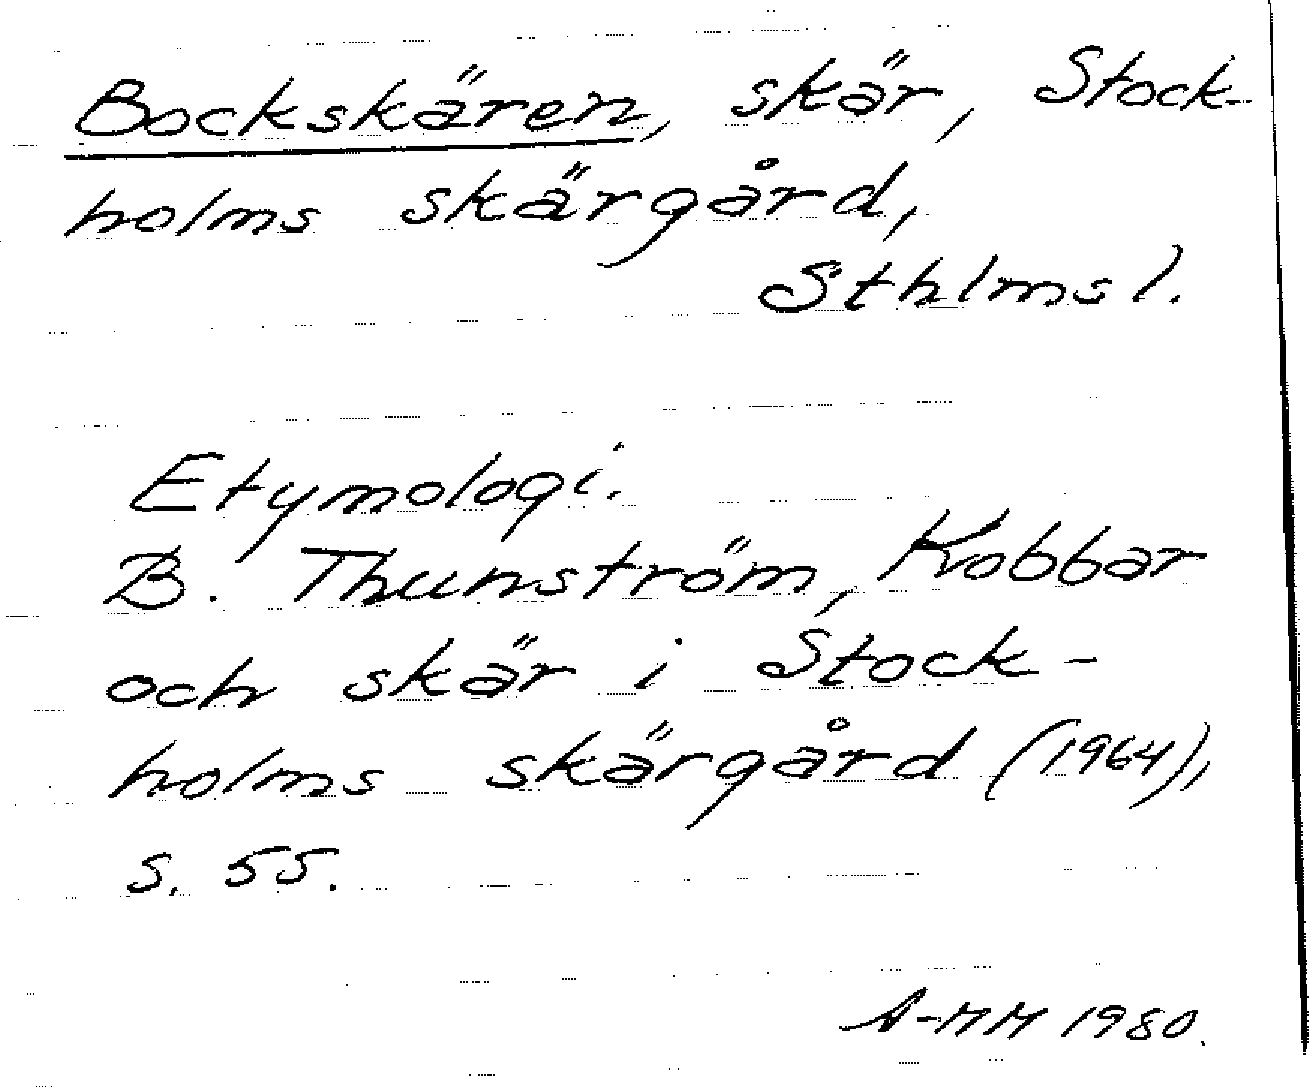 Bockskären, skär, Stock-
holms skärgård,
Sthlms l.
Etymologi.
B. Thunström, Kobbar
och skär i Stock-
holms skärgård (1964),
s. 55.
A-MM 1980.